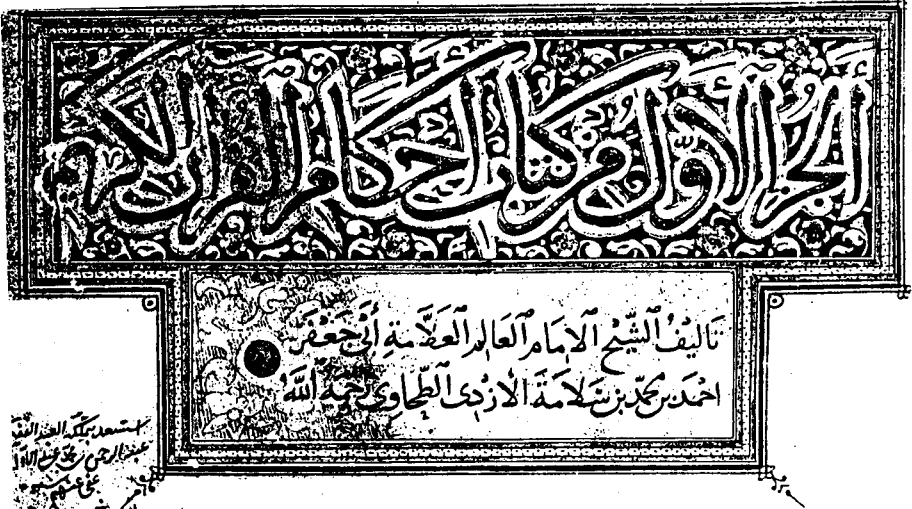 الجزء الأول من كتاب احكام القران الكريم
تَاليفُ ٱلشَّيْخ ٱلإمَامِ ٱلعَالِم ٱلعَلَّامَةِ أَبِي جَعْفَر
احْمَد بن محمّد بن سَلامَةَ الأزْدِى ٱلطّحَاوِي رَحِمَهُ ٱللَّهُ
استسعد بملكه العبد الفقير
عفى عنهم